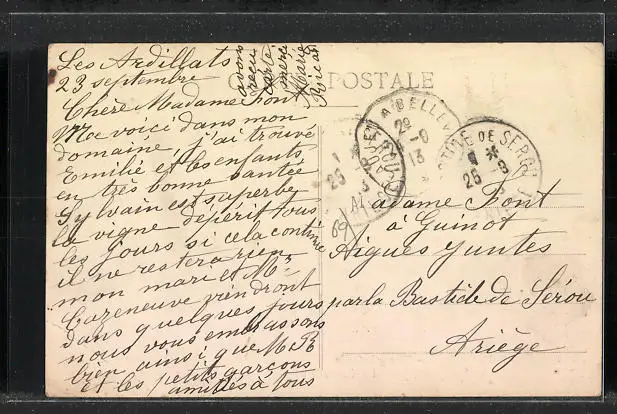 Les Ardillats
23 septembre
Chère Madame Font
Me voici dans mon
domaine, j'ai trouvé
Emilie et les enfants
en très bonne santée
Sylvain est superbe
la vigne dépérit tous
les jours si cela continue
il ne restera rien
mon mari et Mr
Cazeneuve viendront
dans quelques jours
nous vous embrassons
bien ainsi que M. R
Et les petits garçons
amitiés à tous
avons
reçu
carte
merci
Marie
POSTALE
BELLEV
29
13
BASTIDE DE SEROU
26 -9
Madame Font
à Guinot
Aigues Juntes
par la Bastide de Sérou
Ariège